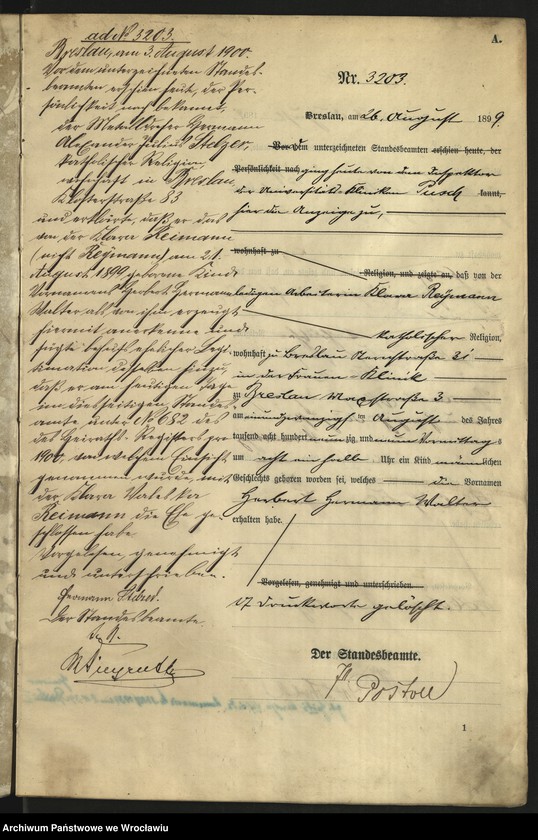 ad No 3203.
Breslau, am 3. August 1900.
Vor dem unterzeichneten Standes-
beamten erschien heut, der Per-
sönlichkeit nach bekannt,
der Metalldreher Hermann
Alexander Julius
katholischer Religion,
wohnhaft in Breslau,
Klosterstraße 83
und erklärte, daß er das
von der Klara Reimann
(nicht Reÿmann) am 21.
August 1899 geborene Kind
Vornamens Herbert Hermann
Walter als von ihm erzeugt
hiermit anerkenne und
fügte behufs ehelicher Legi-
timation desselben hinzu,
daß er am heutigen Tage
im diesseitigen Standes-
amte unter No 682 des
des Heiraths-Registers pro
1900, von welchem Einsicht
genommen wurde, mit
der Klara Valeska
Reimann die Ehe ge-
schlossen habe.
Vorgelesen, genehmigt
und unterschrieben.
Hermann
Der Standesbeamte.
A.
Nr. 3203.
Breslau, am 26. August 1899.
Vor dem unterzeichneten Standesbeamten erschien heute, der
Persönlichkeit nach ging heute von dem Inspektor
der Universitäts Kliniken Pusch kannt,
hier die Anzeige zu,
wohnhaft zu
Religion, und zeigte an, daß von der
ledigen Arbeiterin Klara Reÿmann
katholischer Religion,
wohnhaft zu Breslau
in der Frauen-Klinik
zu Breslau Maxstraße 3
am einundzwanzigsten August des Jahres
tausend acht hundert neunzig und neun Vormittags
um acht ein halb Uhr ein Kind männlichen
Geschlechts geboren worden sei, welches die Vornamen
Herbert Hermann Walter
erhalten habe.
Vorgelesen, genehmigt und unterschrieben.
17 Druckworte gelöscht.
Der Standesbeamte.
Postoll
1
Archiwum Państwowe we Wrocławiu